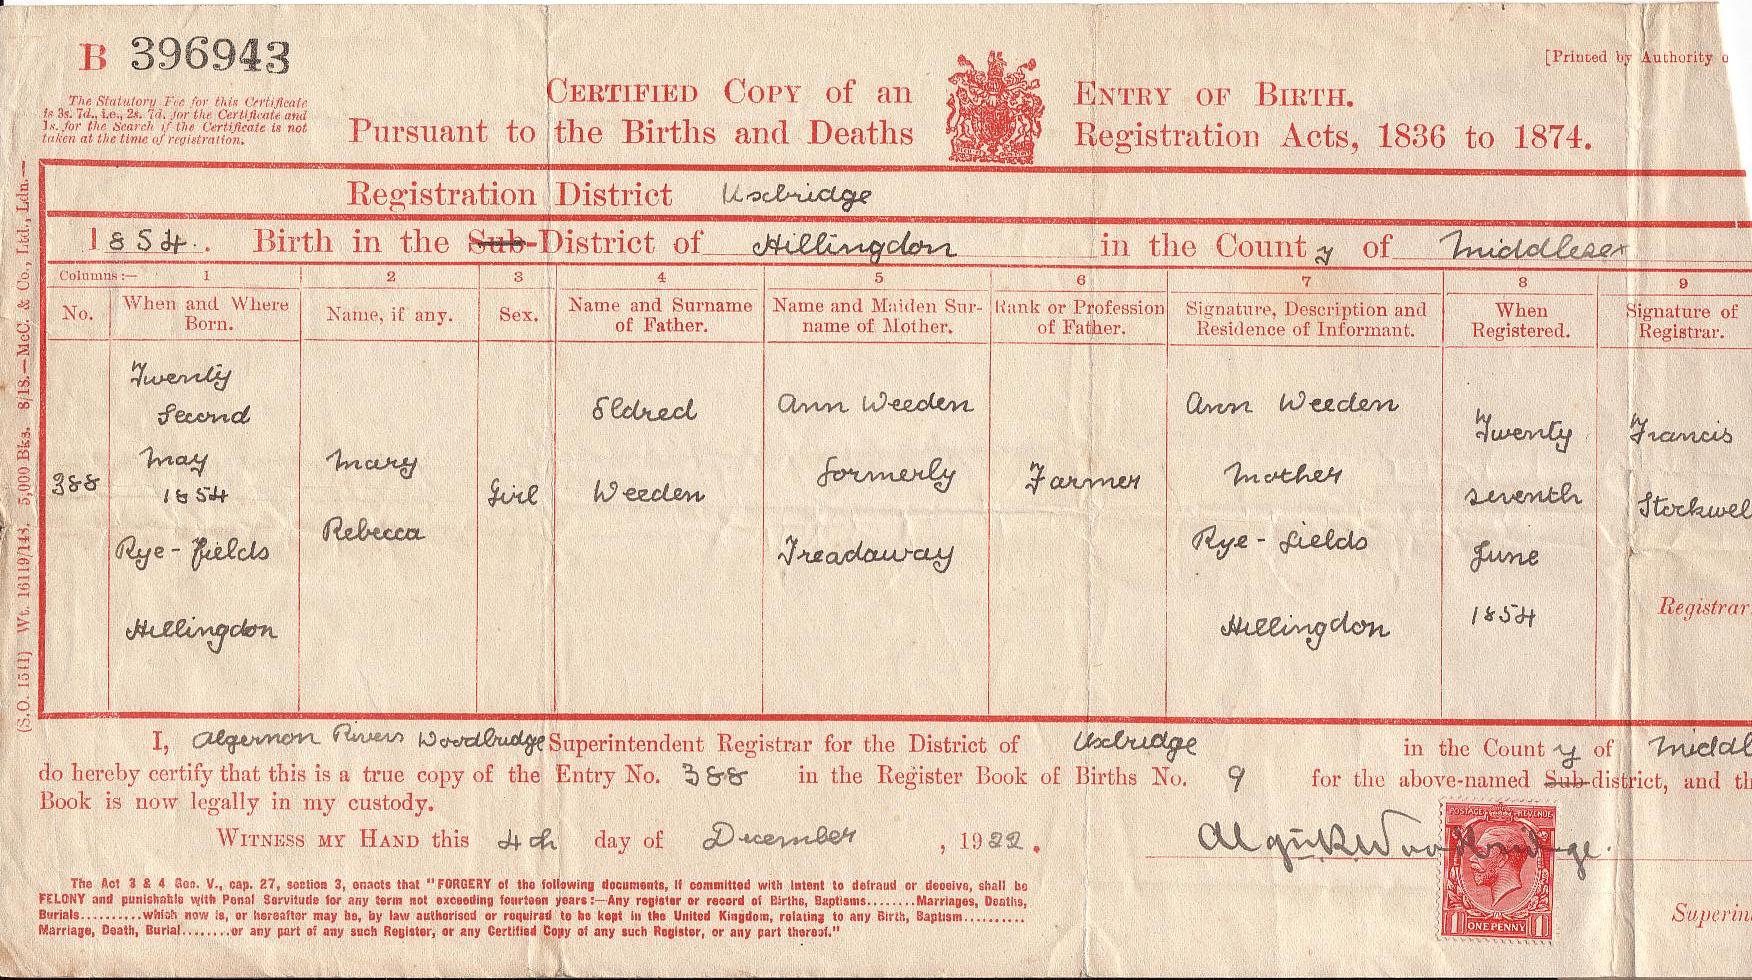 B 396943
[Printed by Authority o
The Statutory Fee for this Certificate
is 3s. 7d., i.e., 2s. 7d. for the Certificate and
1s. for the Search if the Certificate is not
taken at the time of registration.
CERTIFIED COPY of an ENTRY OF BIRTH.
Pursuant to the Births and Deaths Registration Acts, 1836 to 1874.
Registration District Uxbridge
1854. Birth in the Sub-District of Hillingdon in the County of Middlesex
Columns:— 1 2 3 4 5 6 7 8 9
No. When and Where Born. Name, if any. Sex. Name and Surname of Father. Name and Maiden Surname of Mother. Rank or Profession of Father. Signature, Description and Residence of Informant. When Registered. Signature of Registrar.
388
Twenty
Second
May
1854
Rye-fields
Hillingdon
Mary
Rebecca
Girl
Eldred
Weeden
Ann Weeden
formerly
Treadaway
Farmer
Ann Weeden
Mother
Rye-fields
Hillingdon
Twenty
seventh
June
1854
Francis
Stockwel
Registrar
I, Algernon Rivers Woodbridge Superintendent Registrar for the District of Uxbridge in the County of Middl
do hereby certify that this is a true copy of the Entry No. 388 in the Register Book of Births No. 9 for the above-named Sub-district, and th
Book is now legally in my custody.
WITNESS MY HAND this 4th day of December, 1922.
POSTAGE REVENUE
1 ONE PENNY 1
Superin
The Act 3 & 4 Geo. V., cap. 27, section 3, enacts that "FORGERY of the following documents, if committed with intent to defraud or deceive, shall be
FELONY and punishable with Penal Servitude for any term not exceeding fourteen years:—Any register or record of Births, Baptisms........Marriages, Deaths,
Burials..........which now is, or hereafter may be, by law authorised or required to be kept in the United Kingdom, relating to any Birth, Baptism..........
Marriage, Death, Burial........or any part of any such Register, or any Certified Copy of any such Register, or any part thereof."
(S.O. 1511) Wt. 16119/143. 5,000 Bks. 8/18.—McC. & Co., Ltd., Ldn.—